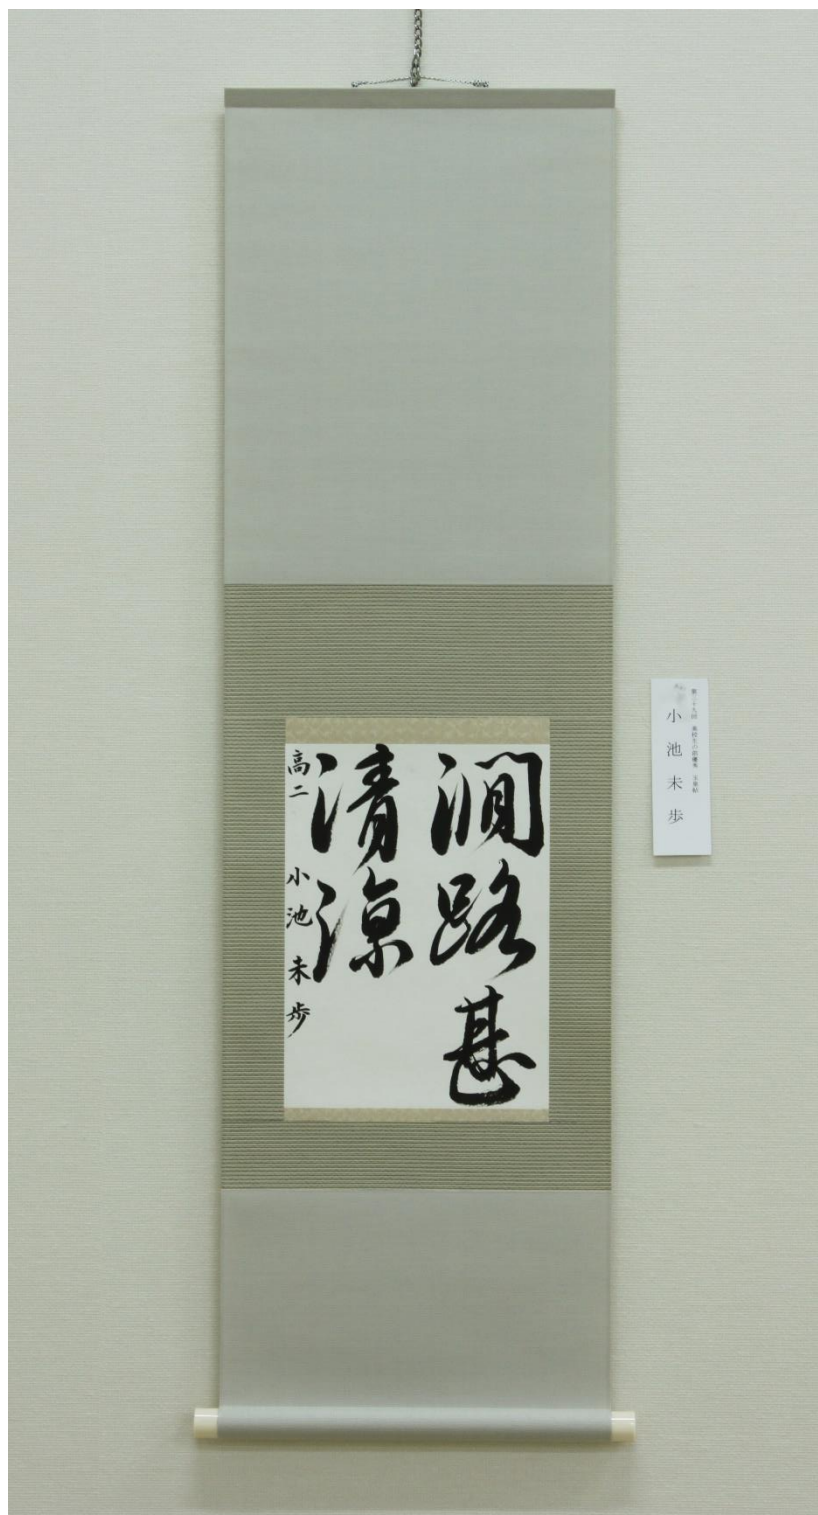 澗路甚
清涼
高二 小池未歩
小池未歩